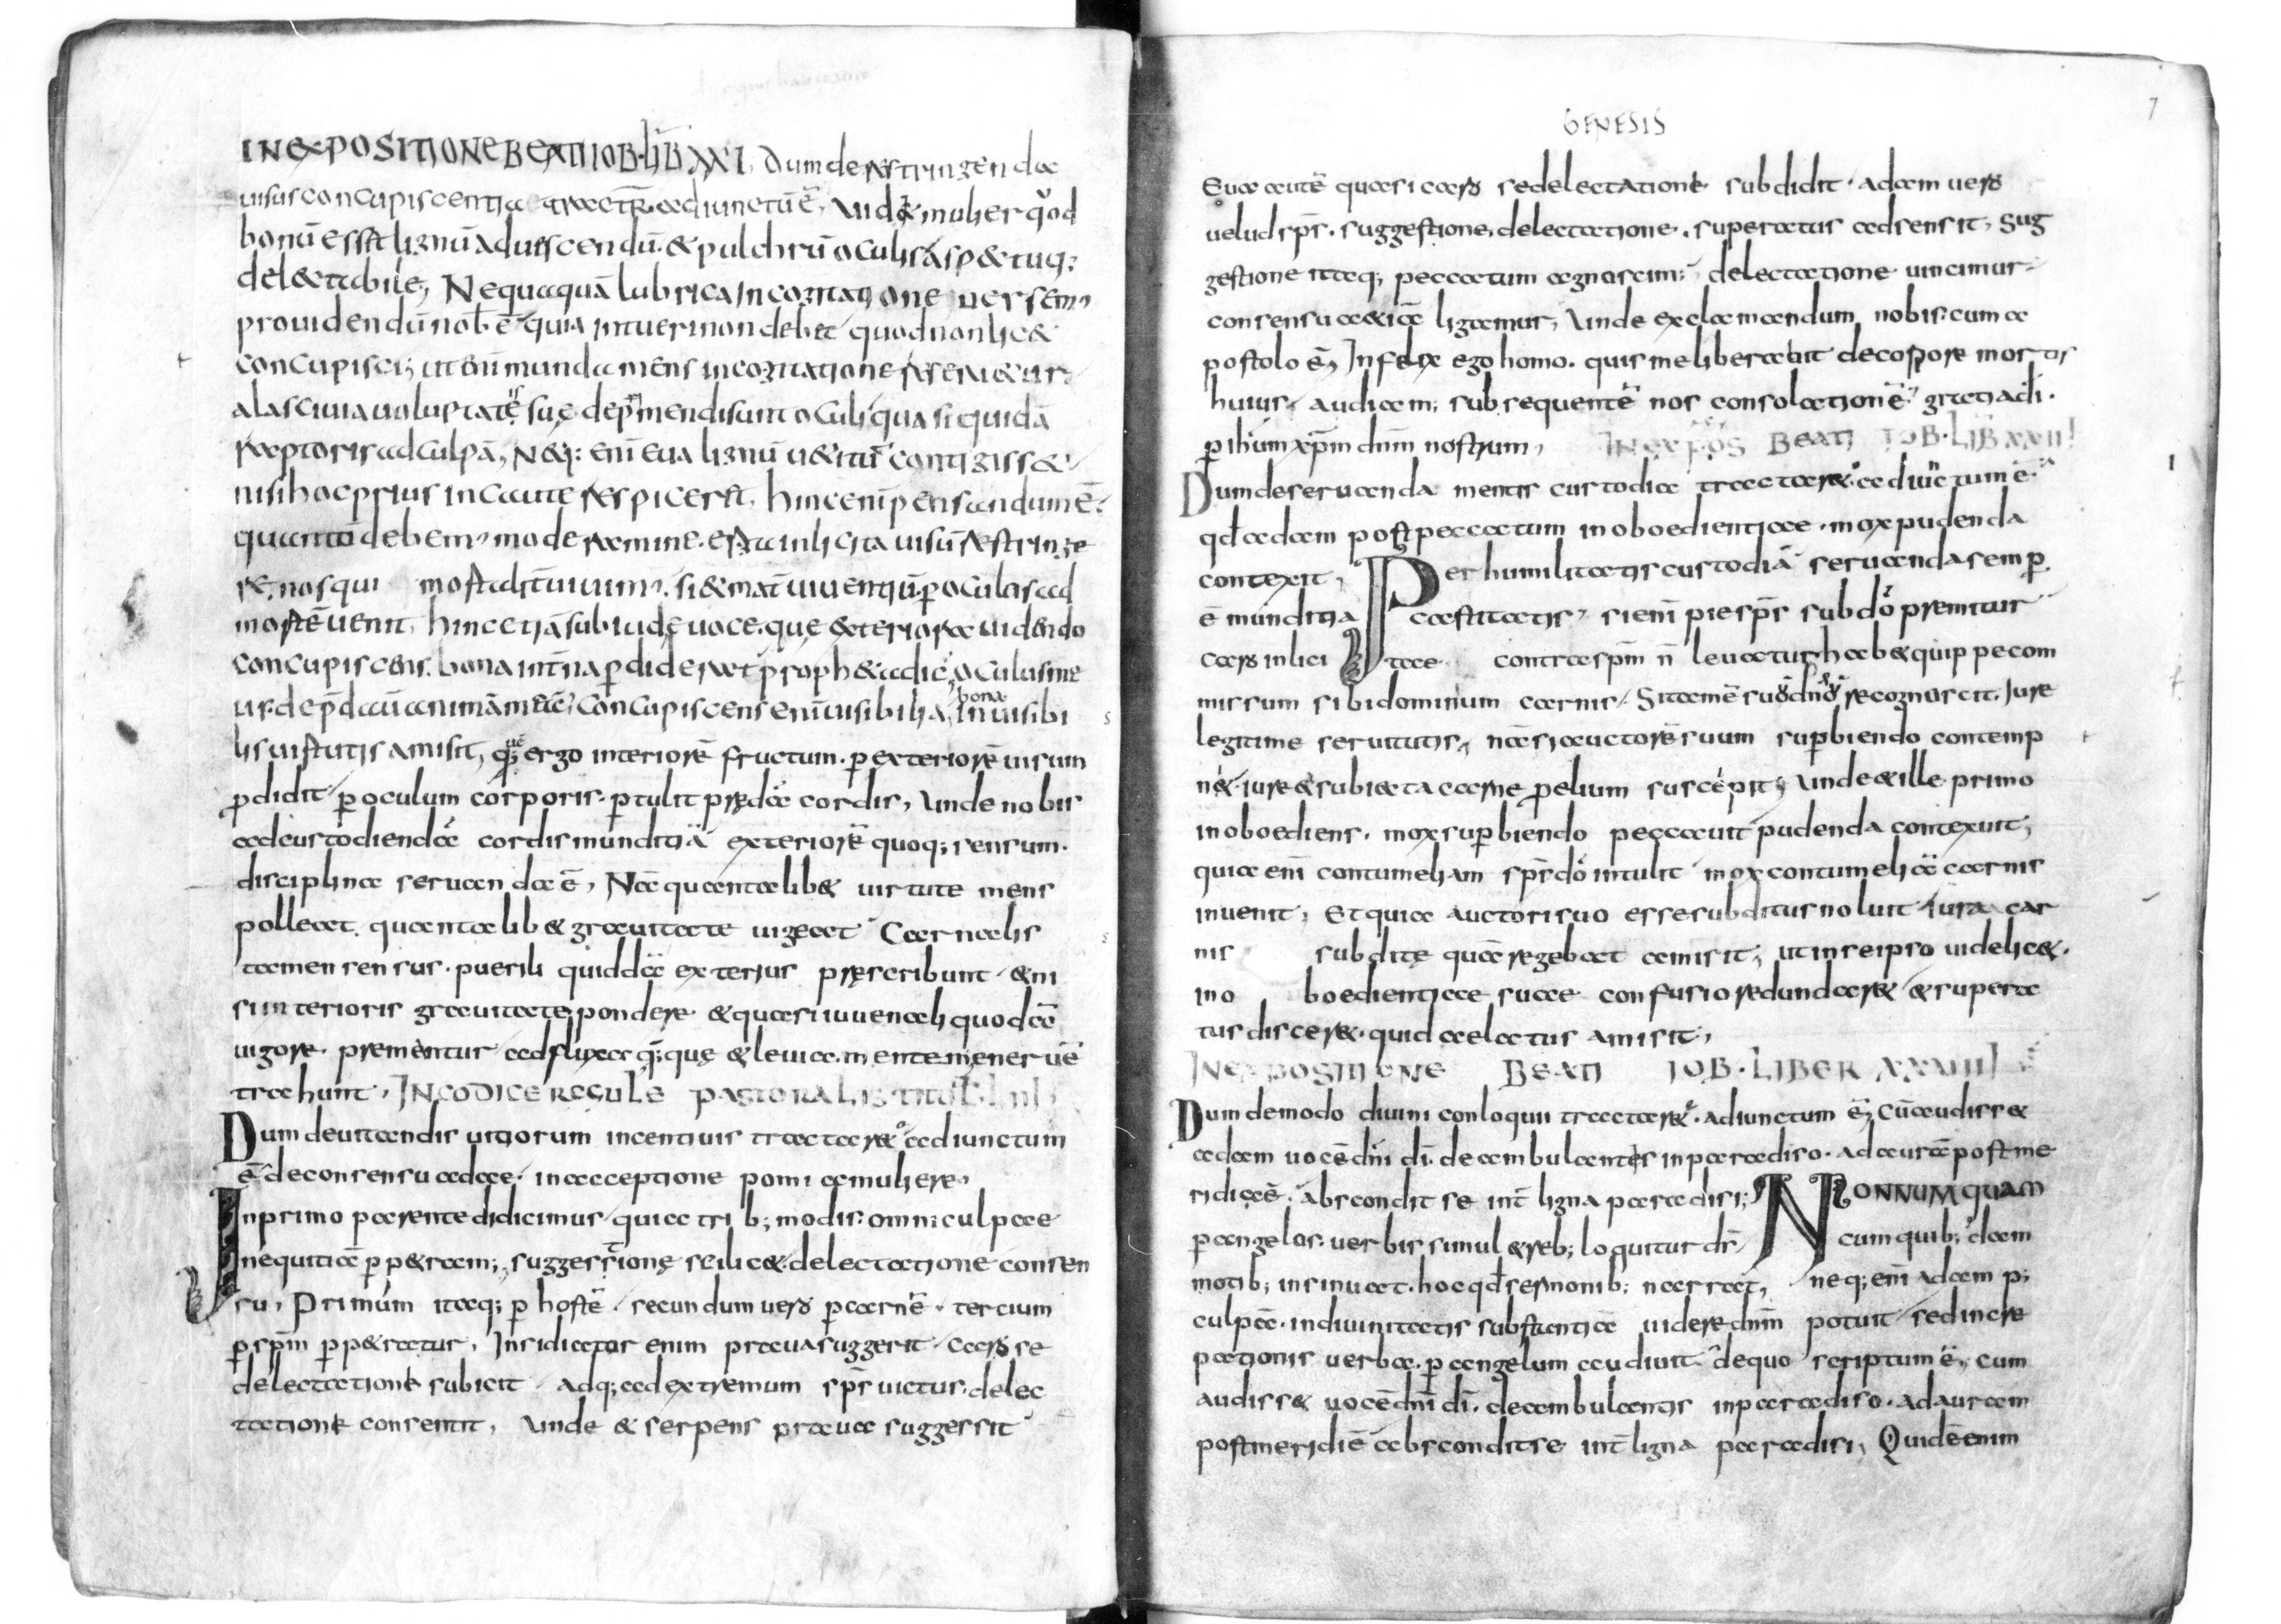 IN EXPOSITIONE BEATI IOB LIB XXI. Dum de restringenda
uisus concupiscentia adiunctū ē, Uidet mulier quod
bonū esset lignū ad uescendū & pulchrū oculis aspectuq;
delectabile, Nequaquā lubrica in cogitatione uersem,
prouidendū nob ē quia intueri non debet quod non licet
concupisci, ut enī munda mens in cogitatione seruetur
a lasciuia uoluptatē sue deprimendi sunt oculi quasi quidā
raptores ad culpā, Neq: enī Eua lignū uetitū contigisset
nisi hoc prius incaute respiceret, hinc enī pensandum ē
quanto debem, moderamine erga inlicita uisū restringe
re nos qui mortalit uiuim, si & mat uiuentiū p oculos ad
mortē uenit, hinc etiā sub iudę uoce que exteriora uidendo
concupiscens bona int̄na pdiderat propheta dic̄ oculus me
us dep̄datus ē animām eā, Concupiscens enī uisibilia, bona inuisibi
lis uirtutis amisit, que ergo interiorē fructum p exteriorē uisum
pdidit p oculum corporis ptulit prędā cordis, Unde nobis
ad custodiendā cordis munditiā exteriorū quoq; sensum
disciplina seruanda ē, Nā quantalib& uirtute mens
polleat quantalib& grauitate uigeat Carnalis
tamen sensus puerili quiddā exterius pręscribunt & ni
si interioris grauitatę pondere & quasi iuuenali quodā
uigore prementur ad fluxa q;que & leuia mente meneruē
trahunt, IN CODICE REGULE PASTORALIS TITOL LIII
Dum de uitandis uitiorum incentiuis tractaret adiunctum
ē de consensu adae in acceptione pomi a muliere,
In primo parente didicimus quia trib; modis omni culpae
nequitiā ppetram; suggestione scilicet delectatione consen
su, Primum itaq; p hostē secundum uero p carnē tercium
p spm̄ ppetratur, Insidiator enim praua suggerit caro se
delectatione subicit adq; ad extremum sps̄ uictus delec
tatione consentit, Unde & serpens praua suggessit
GENESIS
7
Eua autē quasi caro se delectatione subdidit adam uero
uelud sps̄ suggestione delectatione superatus adsensit, Sug
gestione itaq; peccatum agnoscim; delectatione uincimur
consensu a&iā ligamur, Unde exclamandum nobis cum a
postolo ē, Infelix ego homo quis me liberauit de corpore mortis
huius audiam; subsequentē nos consolationē gratia di
p ihūm xp̄m dnm̄ nostrum, IN EXPOS BEATI IOB LIB XXVI
Dum de seruanda mentis custodia tractaret adiunctum ē
qd adam post peccatum inoboedientiae mox pudenda
contexit, Per humilitatis custodiā seruanda semp
ē munditia castitatis, si enī pie sps̄ sub dō premitur
caro inlici tae contra spm̄ n̄ leuatur habet quippe com
missum sibi dominium carnis Si tamē suū dnō recognoscit iure
legitime seruitutis, nā si auctorē suum supbiendo contemp
nit iure & subiecta carne pelium suscepit, Unde & ille primo
inoboediens mox supbiendo peccauit pudenda contexuit,
quia enī contumeliam sps̄ dō intulit mox contumeliā carnis
inuenit, Et quia auctori suo esse subditus noluit iura car
nis subdite quā regebat amisit, ut in se ipso uidelicet
ino boedientiae suae confusio redundaret & supera
tus disceret quid aelatus amisit,
IN EXPOSITIONE BEATI IOB LIBER XXVIII
Dum de modo diuini conloquii tractaret adiunctum ē, Cū audisset
adam uocē dn̄i dī deambulantis in paradiso ad aurā postme
ridiāe abscondit se int̄ ligna paradisi; NONNUMQUAM
p angelos uerbis simul & reb; loquitur dr̄ cum quib;dam
motib; insinuat hoc qd sermonib; narrat, neq; enī adam p;
culpā in diuinitatis substantiā uidere dnm̄ potuit sed incre
pationis uerba p angelum audiuit de quo scriptum ē, cum
audisset uocē dn̄i dī deambulantis in paradiso ad auram
post meridiē abscondit se int̄ ligna paradisi, Quid ē enim